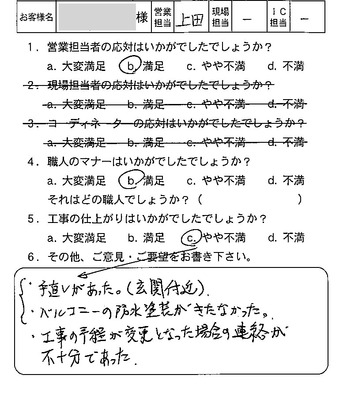 お客様名 様 営業担当 上田 現場担当 − IC担当 −
1. 営業担当者の応対はいかがでしたでしょうか？
a. 大変満足 b. 満足 c. やや不満 d. 不満
2. 現場担当者の応対はいかがでしたでしょうか？
a. 大変満足 b. 満足 c. やや不満 d. 不満
3. コーディネーターの応対はいかがでしたでしょうか？
a. 大変満足 b. 満足 c. やや不満 d. 不満
4. 職人のマナーはいかがでしたでしょうか？
a. 大変満足 b. 満足 c. やや不満 d. 不満
それはどの職人でしょうか？（ ）
5. 工事の仕上がりはいかがでしたでしょうか？
a. 大変満足 b. 満足 c. やや不満 d. 不満
6. その他、ご意見・ご要望をお書き下さい。
・手直しがあった。(玄関付近).
・ベルコニーの防水塗装がきたなかった。
・工事の予定が変更となった場合の連絡が
不十分であった.